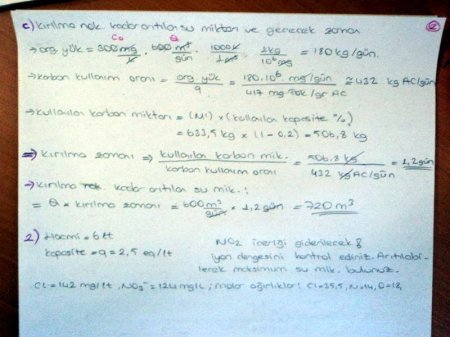 c) kırılma nok. kadar arıtılan su miktarı ve geçecek zaman
②
Co Q
→ org yük = 300 mg/lt . 600 m³/gün . 1000 lt/1 m³ . 1 kg/10⁶ mg = 180 kg/gün.
→ karbon kullanım oranı = org yük/q = 180.10⁶ mg/gün / 417 mg TOK/gr AC ≅ 432 kg AC/gün
→ kullanılan karbon miktarı = (M') x (kullanılan kapasite %)
= 633,5 kg x (1-0,2) = 506,8 kg
⇒ kırılma zamanı ⇒ kullanılan karbon mik. / karbon kullanım oranı = 506,8 kg / 432 kg AC/gün = 1,2 gün
→ kırılma nok. kadar arıtılan su mik. :
= Q x kırılma zamanı = 600 m³/gün x 1,2 gün = 720 m³
2) Hacmi = 6 lt NO2 içeriği giderilecek
kapasite = q = 2,5 eq/lt iyon dengesini kontrol ediniz. Arıtılabi-
lecek maksimum su mik. bulunuz.
Cl = 142 mg/lt , NO3⁻ = 124 mg/L ; molar ağırlıklar: Cl=35,5, N=14, O=18,